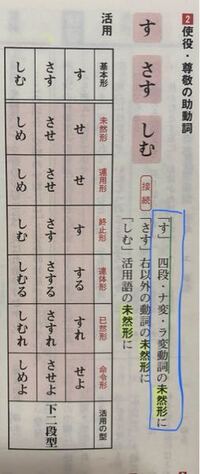 2 使役・尊敬の助動詞
す さす しむ
接続
「す」 四段・ナ変・ラ変動詞の未然形に
「さす」右以外の動詞の未然形に
「しむ」活用語の未然形に
活用
基本形 未然形 連用形 終止形 連体形 已然形 命令形 活用の型
す せ せ す する すれ せよ 下二段型
さす させ させ さす さする さすれ させよ
しむ しめ しめ しむ しむる しむれ しめよ